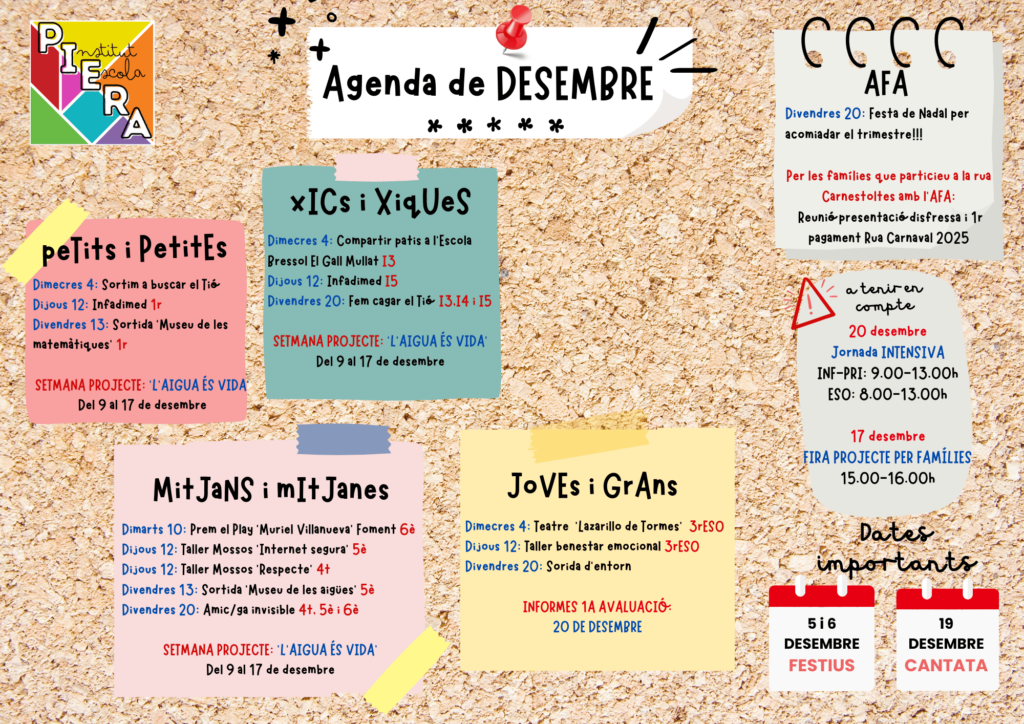 PIERA
Institut
Escola
Agenda de DESEMBRE
* * * * *
peTits i PetitEs
Dimecres 4: Sortim a buscar el Tió
Dijous 12: Infadimed 1r
Divendres 13: Sortida 'Museu de les
matemàtiques' 1r
SETMANA PROJECTE: 'L'AIGUA ÉS VIDA'
Del 9 al 17 de desembre
xICs i XiqUeS
Dimecres 4: Compartir patis a l'Escola
Bressol El Gall Mullat I3
Dijous 12: Infadimed I5
Divendres 20: Fem cagar el Tió I3.I4 i I5
SETMANA PROJECTE: 'L'AIGUA ÉS VIDA'
Del 9 al 17 de desembre
MitJaNS i mItJanes
Dimarts 10: Prem el Play 'Muriel Villanueva' Foment 6è
Dijous 12: Taller Mossos 'Internet segura' 5è
Dijous 12: Taller Mossos 'Respecte' 4t
Divendres 13: Sortida 'Museu de les aigües' 5è
Divendres 20: Amic/ga invisible 4t. 5è i 6è
SETMANA PROJECTE: 'L'AIGUA ÉS VIDA'
Del 9 al 17 de desembre
JoVEs i GrAns
Dimecres 4: Teatre 'Lazarillo de Tormes' 3rESO
Dijous 12: Taller benestar emocional 3rESO
Divendres 20: Sorida d'entorn
INFORMES 1A AVALUACIÓ:
20 DE DESEMBRE
AFA
Divendres 20: Festa de Nadal per
acomiadar el trimestre!!!
Per les famílies que participeu a la rua
Carnestoltes amb l'AFA:
Reunió presentació disfressa i 1r
pagament Rua Carnaval 2025
a tenir en
compte
20 desembre
Jornada INTENSIVA
INF-PRI: 9.00-13.00h
ESO: 8.00-13.00h
17 desembre
FIRA PROJECTE PER FAMÍLIES
15.00-16.00h
Dates
importants
5 i 6
DESEMBRE
FESTIUS
19
DESEMBRE
CANTATA